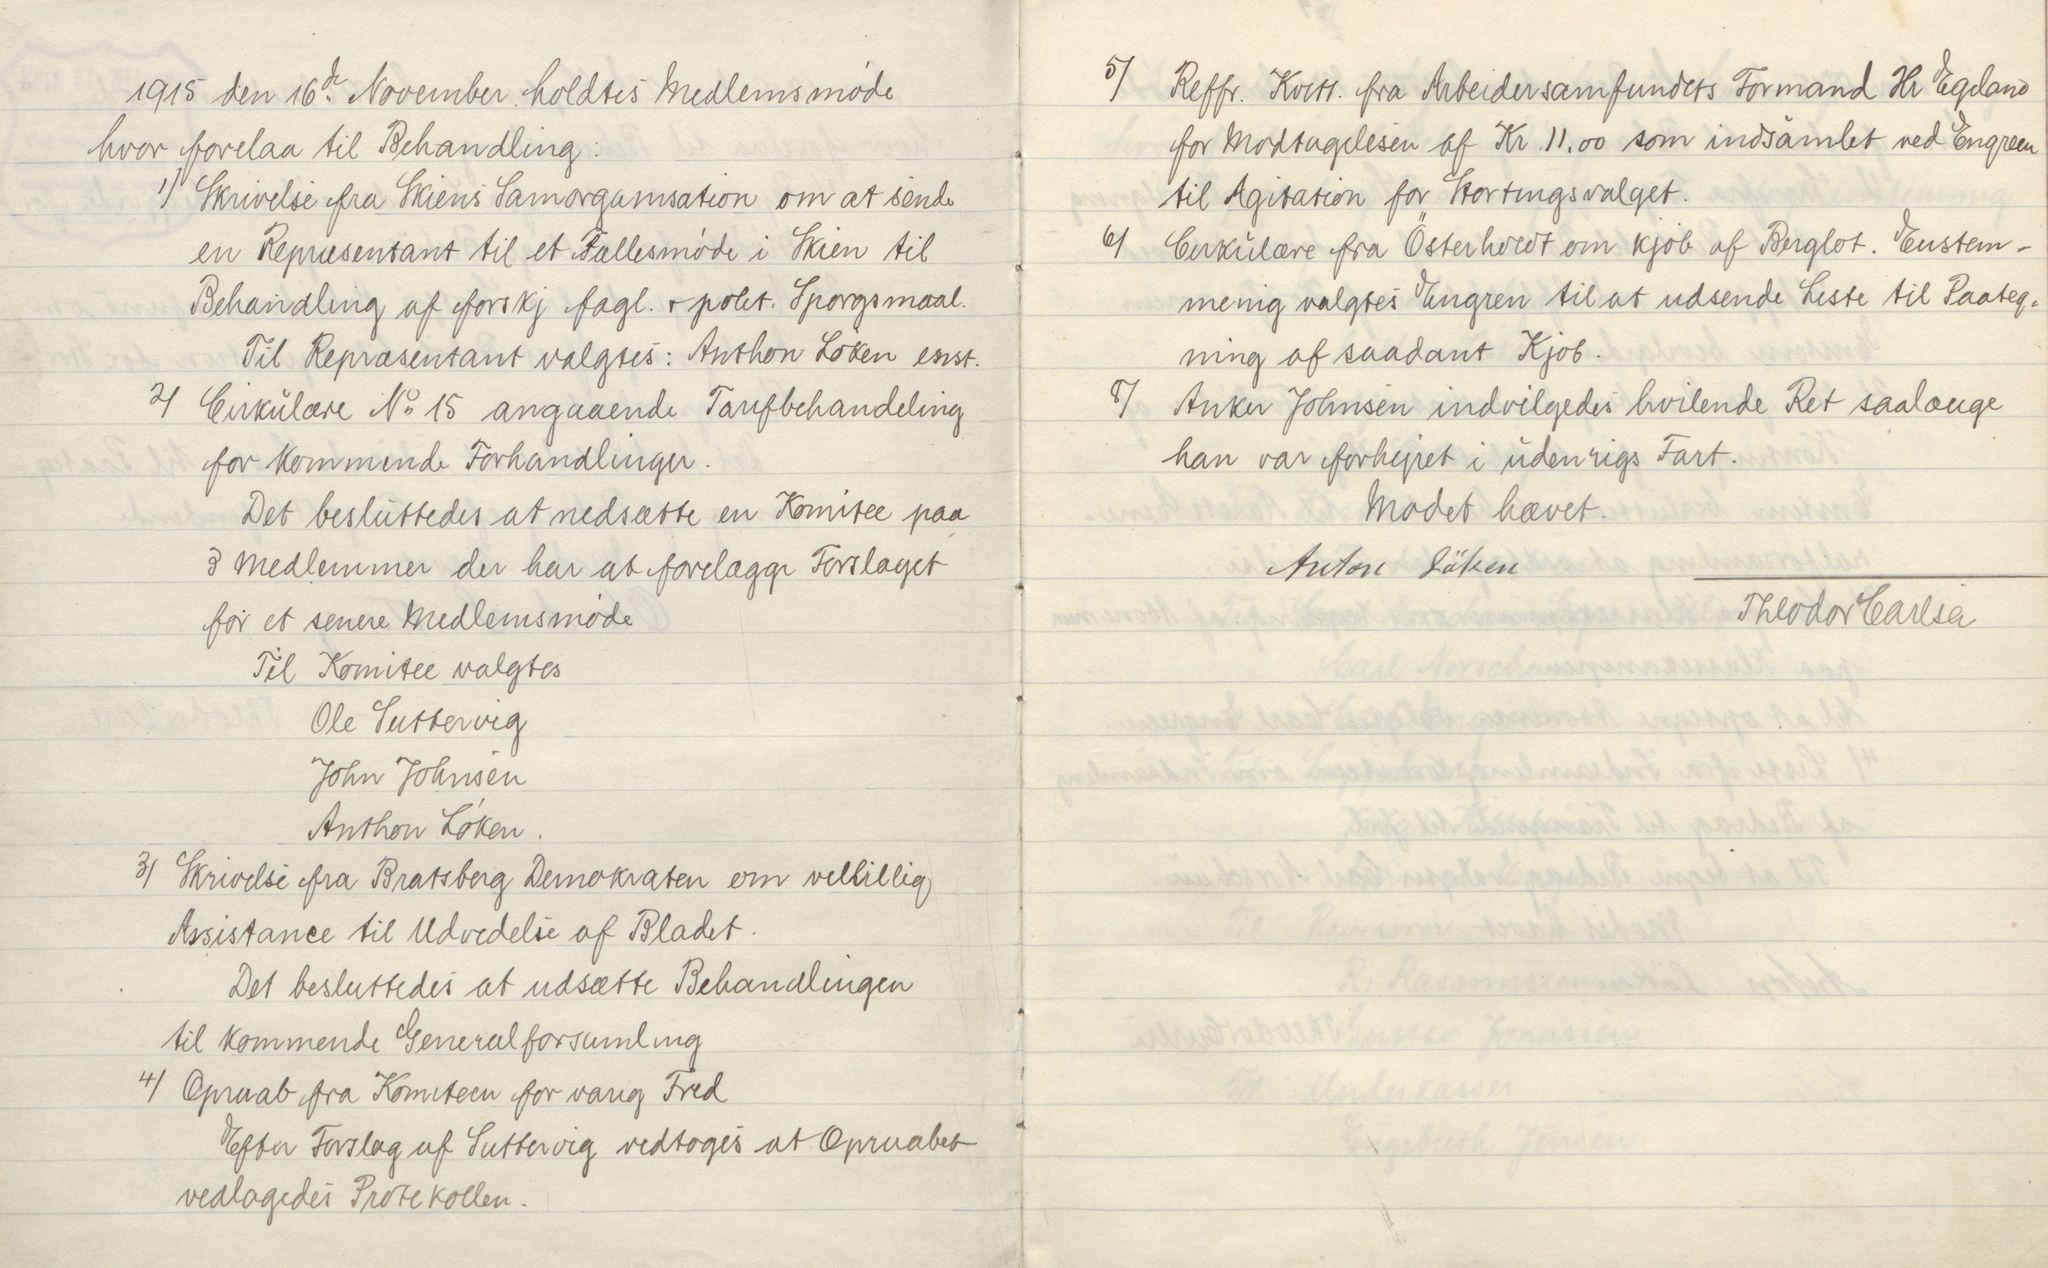 1915 den 16de November holdtes Medlemsmöde
hvor forelaa til Behandling:
1) Skrivelse fra Skiens Samorganisation om at sende
en Repræsentant til et Fællesmöde i Skien til
Behandling af forskj fagl. & polit. Sporgsmaal.
Til Repræsentant valgtes: Anthon Löken enst.
2) Cirkulære No 15 angaaende Tarifbehandeling
for kommende Forhandlinger.
Det besluttedes at nedsætte en Komitee paa
3 Medlemmer der har at forelægge Forslaget
for et senere Medlemsmöde
Til Komitee valgtes
Ole Suttervig
John Johnsen
Anthon Löken.
3) Skrivelse fra Bratsberg Demokraten om velvillig
Assistance til Udvedelse af Bladet.
Det besluttedes at udsætte Behandlingen
til kommende Generalforsamling
4) Opraab fra Komiteen for varig Fred
Efter Forslag af Suttervig vedtoges at Opraabet
vedlagedes Protekollen.
5) Reffr. Kvitt. fra Arbeidersamfundets Formand Hr Egeland
for Modtagelesen af Kr. 11.00 som indsamlet ved Engreen
til Agitation for Stortingsvalget.
6) Cirkulære fra Österholdt om kjöb af Berglot. Enstem-
menig valgtes Engren til at udsende Leste til Paateg-
ning af saadant Kjöb.
8) Anker Johnsen indvilgedes hvilende Ret saalænge
han var forhyret i udenrigs Fart.
Modet hævet.
Anton Löken
Theodor Carlsen